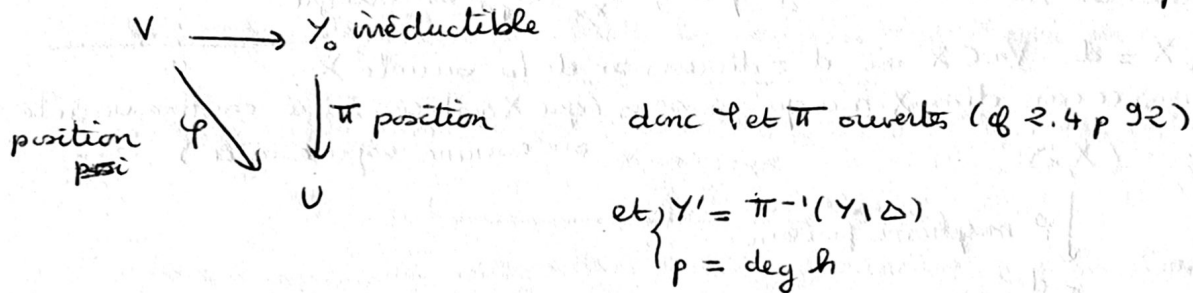 V ⟶ Y₀ irréductible
position φ π position donc φ et π ouvertes (cf 2.4 p 92)
U
et { Y' = π⁻¹(Y \ Δ)
p = deg h